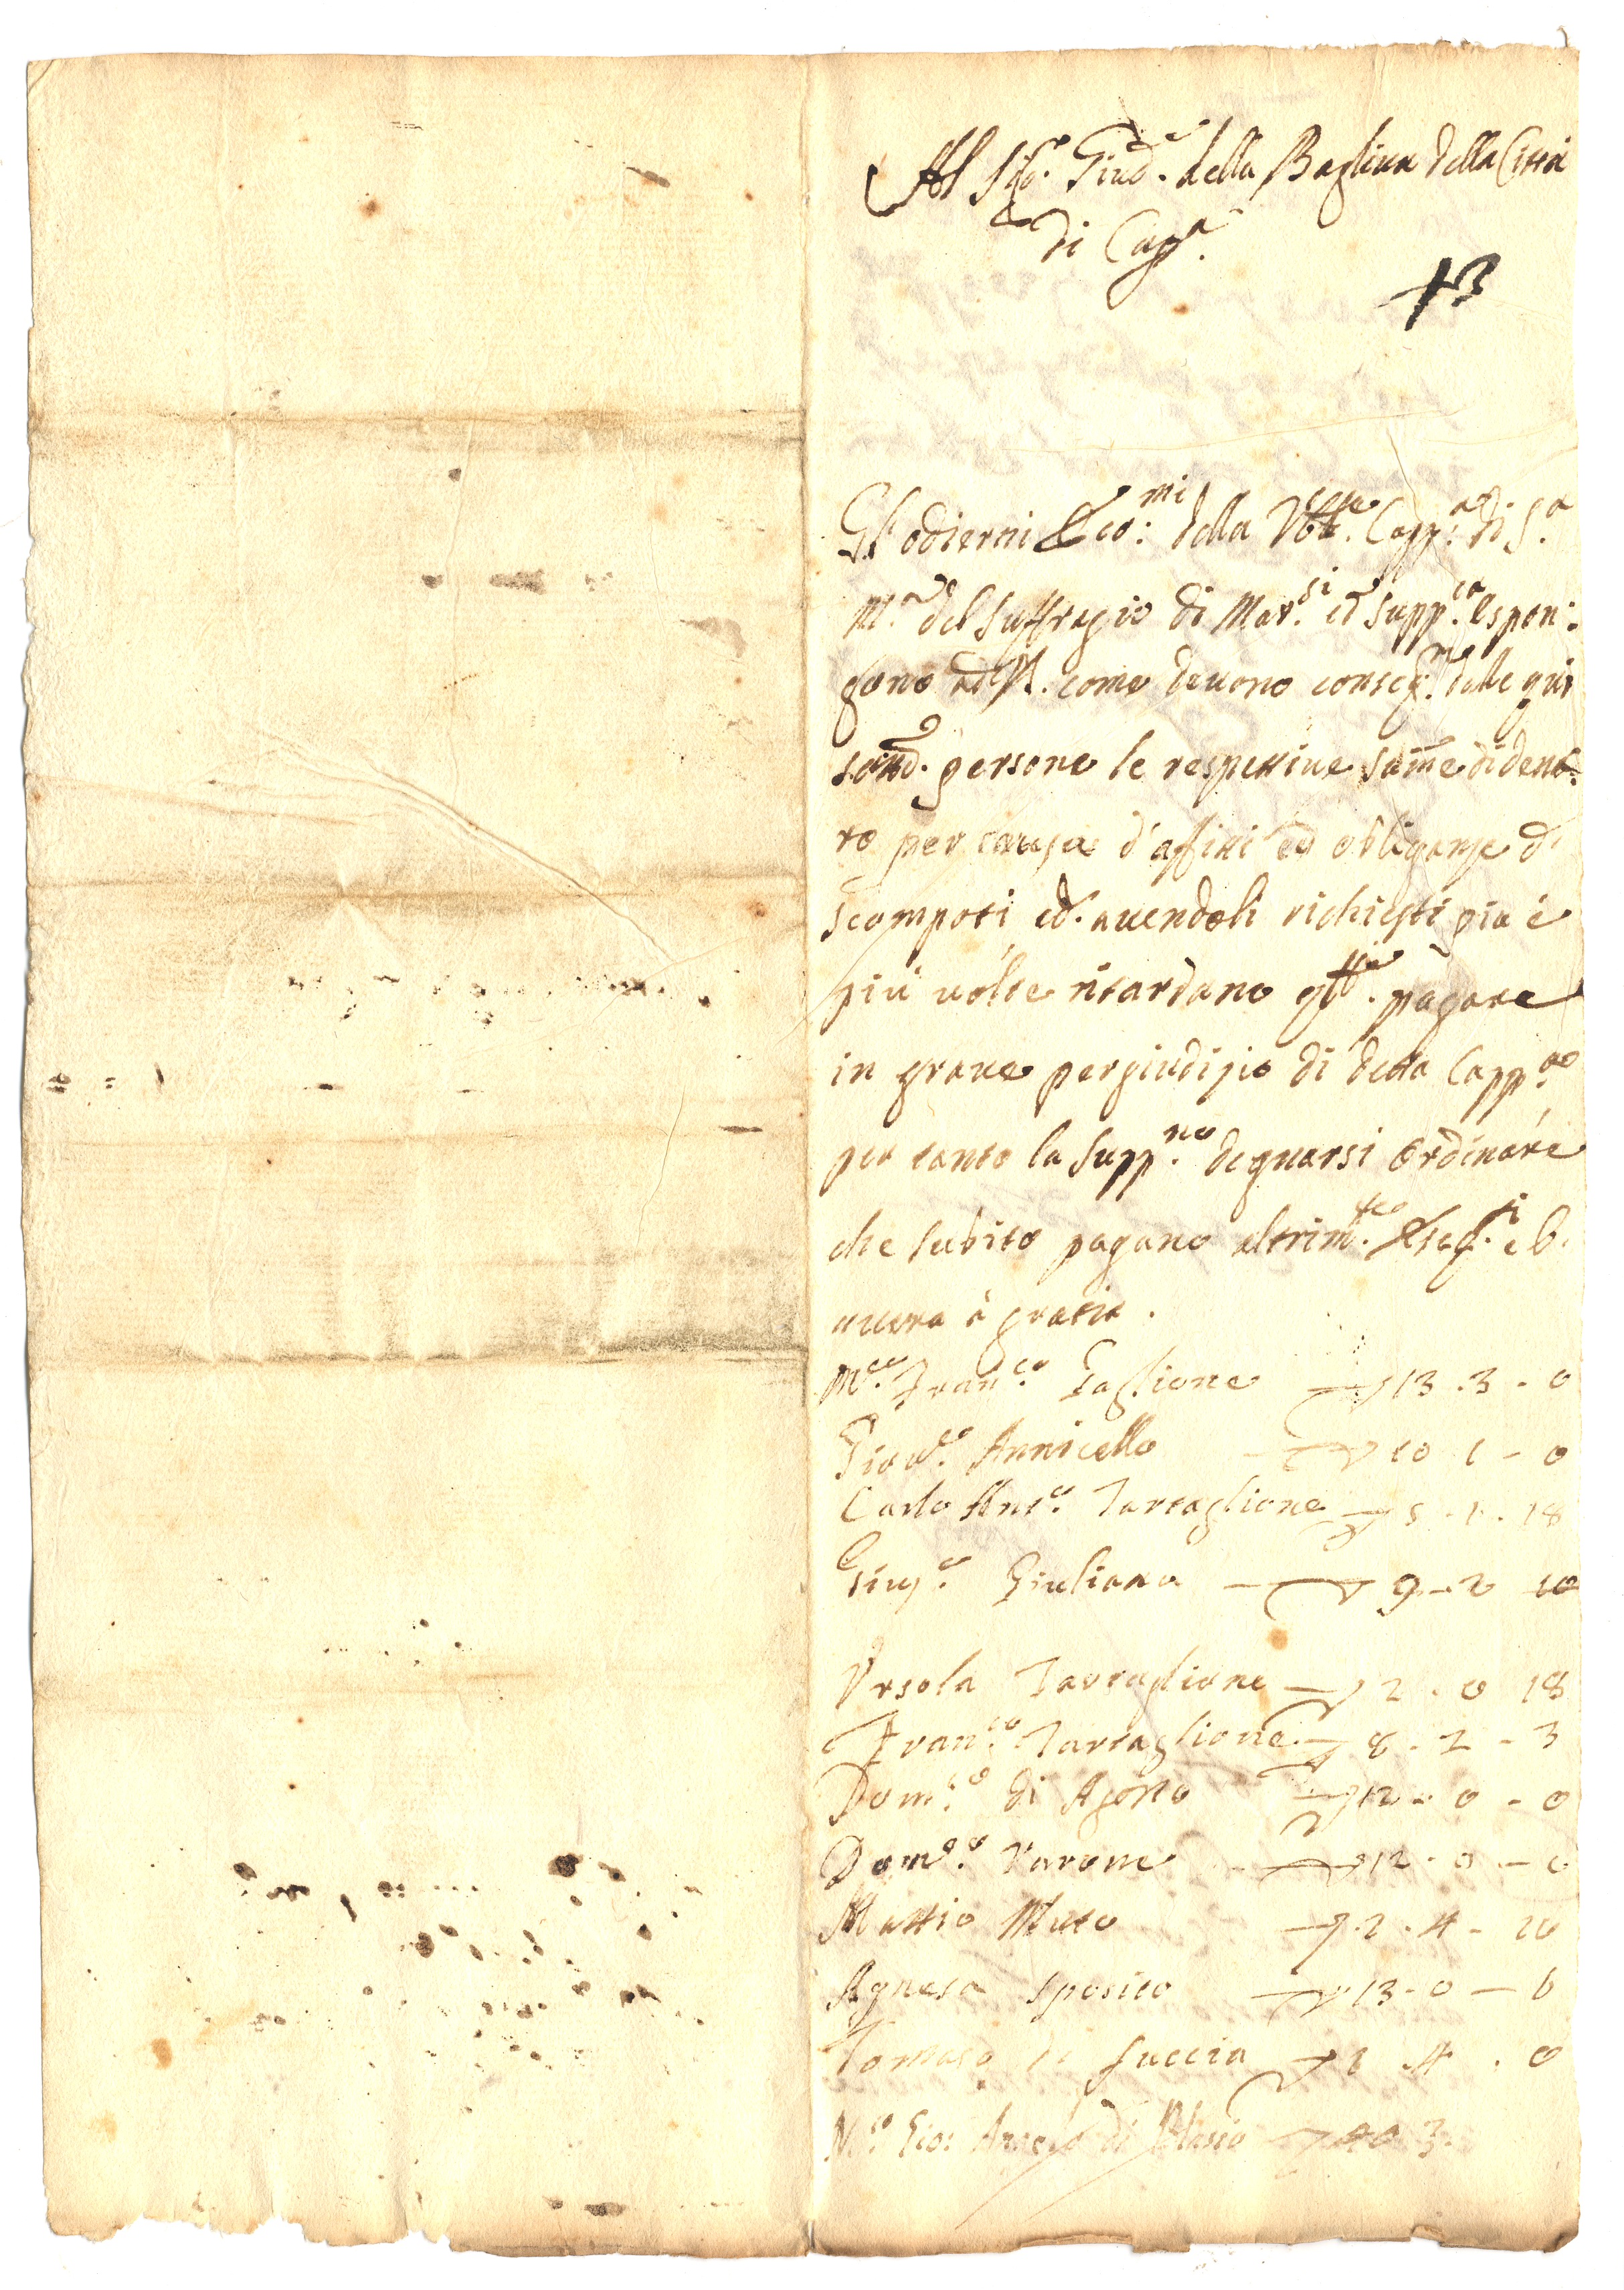 Al Sig.e Giud.e della Bagliva della Città
di Cap.a
13
Gl'odierni Eco:mi della Capp.a di S.a
M.a del Suffragio di Mar.si et supp.ca espon:
gono ad V.S. come devono conseq.re dalle qui
sotto. persone le respettive somme di dena:
ro per causa d'affitti ed obliganze di
scomputi ed. avendoli richiesti più è
più volte ritardano pagare
in grave pergiudizio di detta Capp.a
per tanto la supp.no degnarsi ordinare
che subito pagano altrim.te
avera à gratia.
M.co Fran.co Taglione 13 . 3 - 0
Giov.e Annicello 10 1 - 0
Carlo Ant.o Tartaglione 5 - 1 - 18
Gius.e Giuliano 9 - 2 10
Ursola Tartaglione 2 . 0 18
Fran.co Tartaglione 8 - 2 - 3
Dom.co di Agosto 12 - 0 - 0
Dom.co Varone 12 - 0 - 0
Mattio Muto 2 . 4 - 10
Agnesa Sposito 13 - 0 - 6
Tomaso di Succia 1 . 4 . 0
N.o Gio: Angelo di Blasio 3.